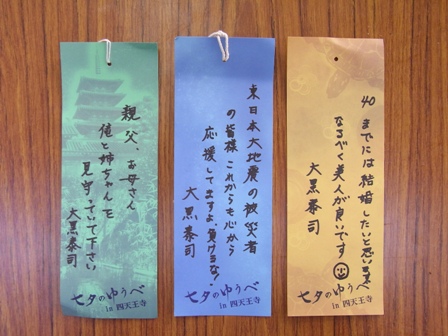 親父、お母さん
俺と姉ちゃんを
見守っていて下さい
大黒泰司
七夕のゆうべ
in 四天王寺
東日本大地震の被災者
の皆様これからも心から
応援してますよ。負けるな!
大黒泰司
七夕のゆうべ
in 四天王寺
40までには結婚したいと思います
なるべく美人が良いです
大黒泰司
七夕のゆうべ
in 四天王寺